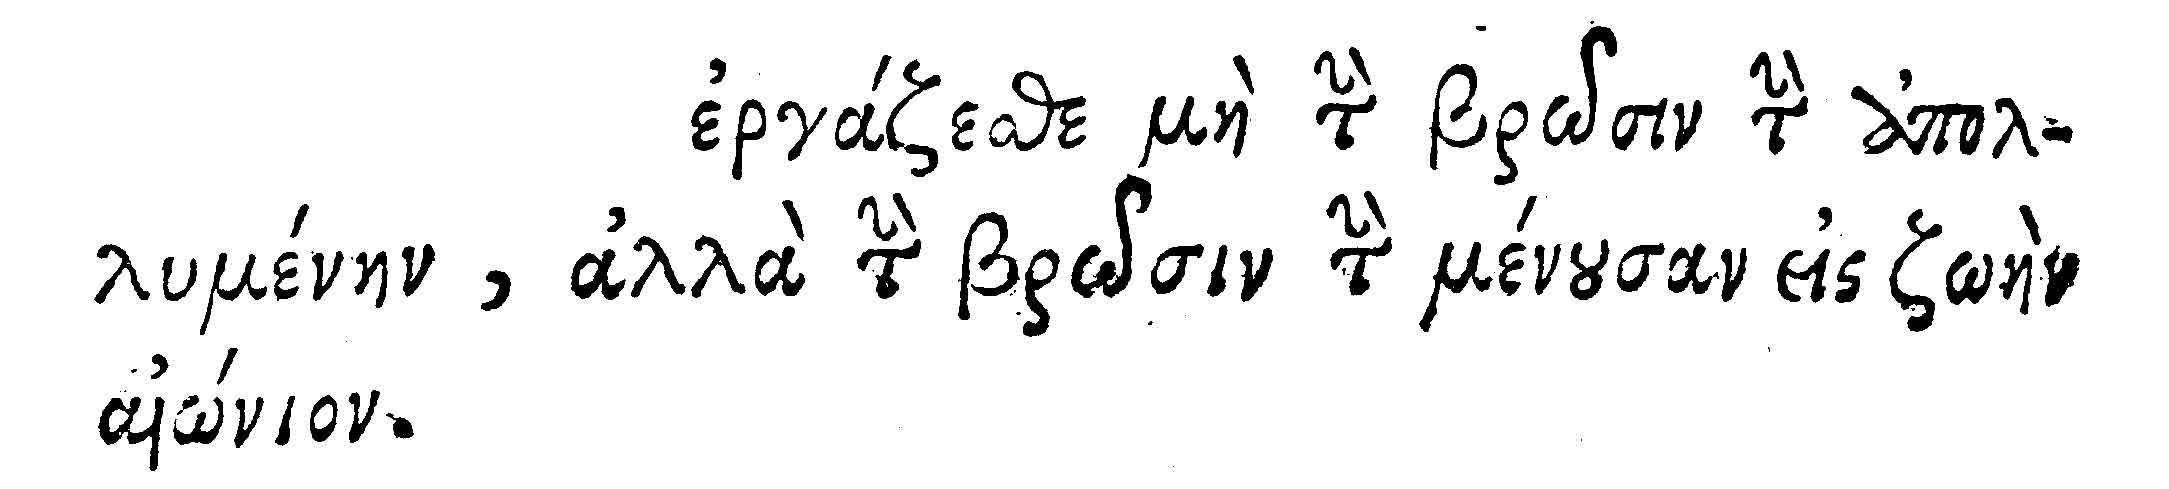 ἐργάζεσθε μὴ τὴν βρῶσιν τὴν ἀπολ-
λυμένην, ἀλλὰ τὴν βρῶσιν τὴν μένουσαν εἰς ζωὴν
αἰώνιον.